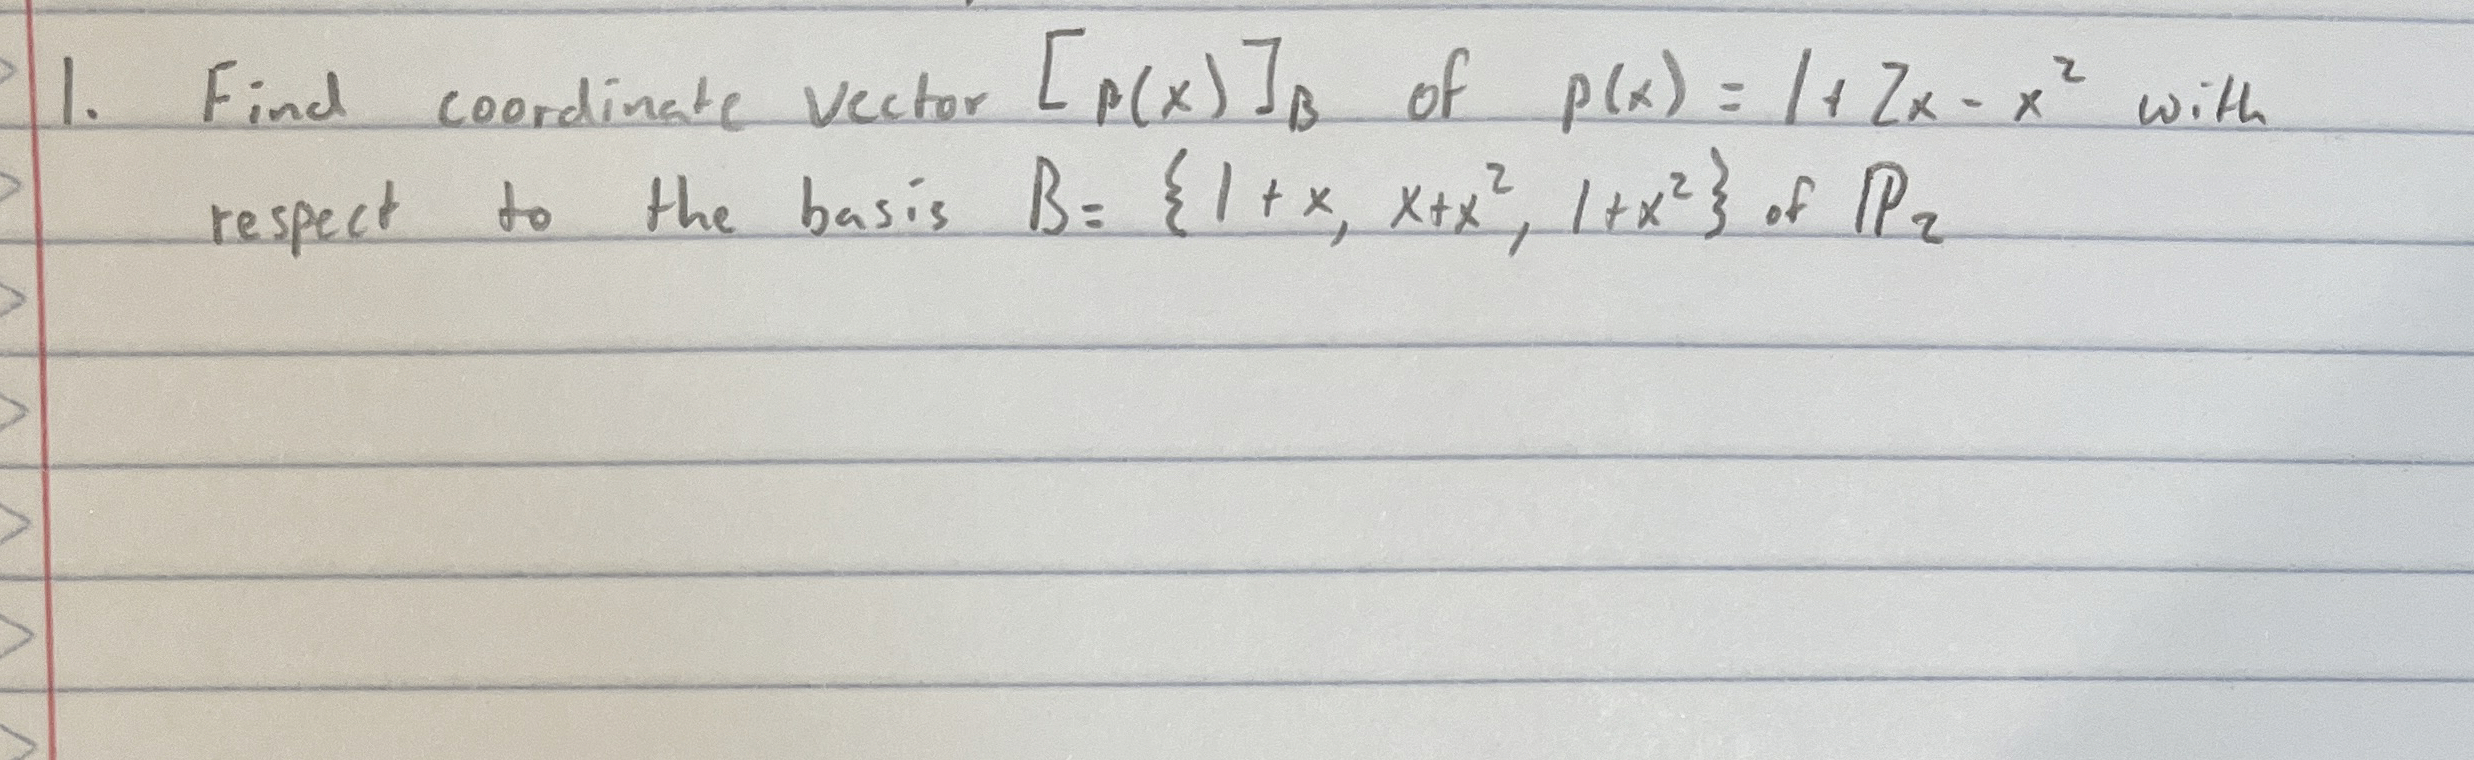 1. Find coordinate vector [p(x)]_B of p(x) = 1 + 2x - x² with
respect to the basis B = {1 + x, x+x², 1+x²} of ℙ₂